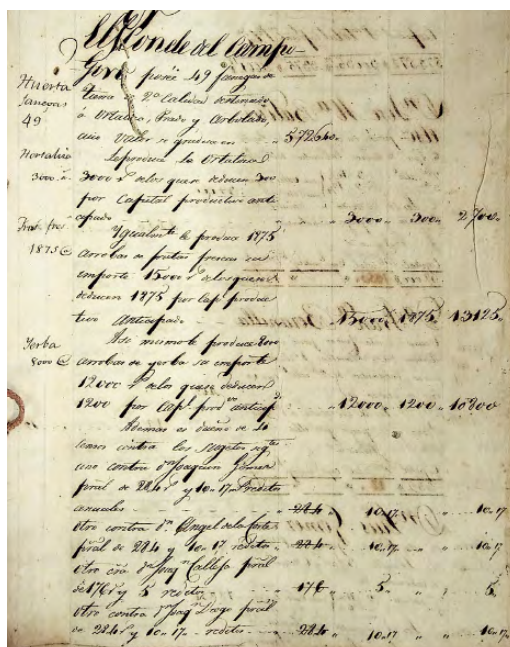 El Conde del Campo
Giro posee 49 fanegas de
Huerta
fanegas
49
tierra de 2ª Calidad destinado
a Ortaliza, Prado y Arbolado,
cuio valor se gradua en 57260
Hortaliza
3000 r
Le produce la Ortaliza
3000 r de los que se deducen 300
por Capital productivo anti-
cipado 3000 300 2700
Frut. fres
1875 @
Ygualmte le produce 1875
arrobas de frutas frescas su
importe 15000 r de los que se
deducen 1875 por Capl produc
tivo Anticipado 15000 1875 13125
Yerba
8000 @
Asi mismo le produce 8000
arrobas de yerba su importe
12000 r de los que se deducen
1200 por Capl prodvo anticipdo 12000 1200 10800
Ademas es dueño de
censos contra los sugetos sigtes
uno contra Dn Joaquin Gomez
pral de 284 r y 10 17 reditos
anuales 284 10 17 10 17
otro contra Dn Angel de la
pral de 284 y 10 17 reditos 284 10 17 10 17
otro cra Dn Joaqn Calleja pral
de 176 r y 5 reditos 176 5 5
otro contra Dn Joaqn pral
de 284 r y 10 17 reditos 284 10 17 10 17